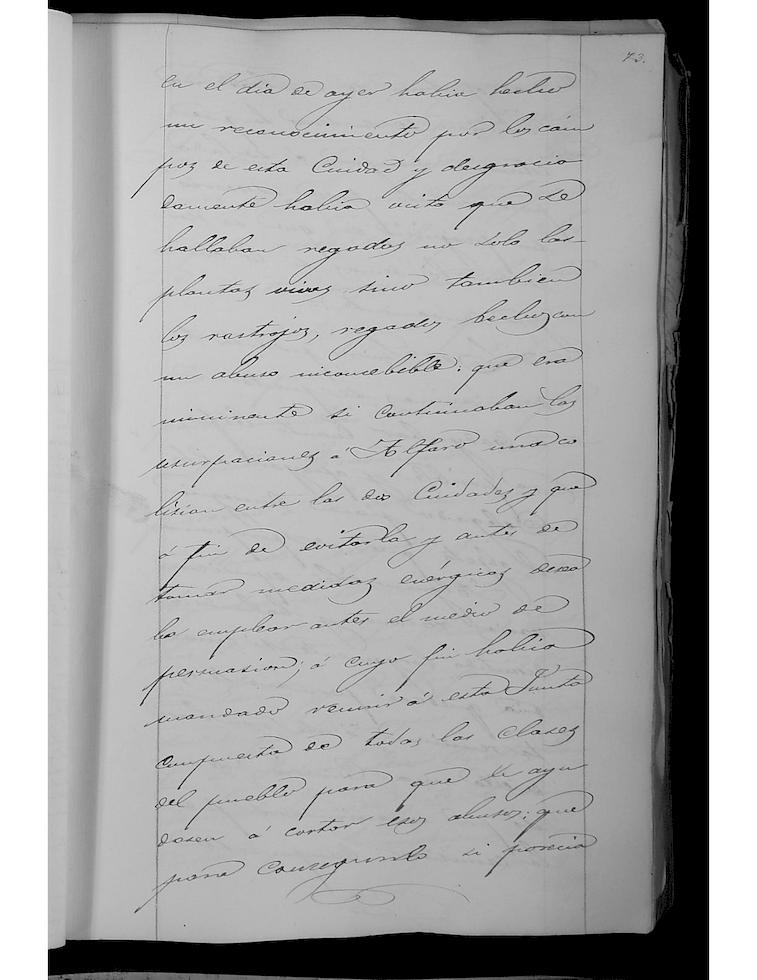 73.
en el dia de ayer habia hecho
un reconocimiento por los cam
pos de esta Cuidad y desgracia
damente habia visto que se
hallaban regados no solo las
plantas vivas sino tambien
los rastrojos, regados hechos con
un abuso inconcebible: que era
inminante si continuaban las
usurpaciones á Alfaro una co
lision entre las dos Cuidades y que
á fin de evitarla y antes de
tomar medidas enérgicas desea
ba emplear antes el medio de
persuasion; á cuyo fin habia
mandado reunir á esta Junta
compuesta de todas las clases
del pueblo para que le ayu
dasen á cortar esos abusos: que
para conseguirlo si parecia